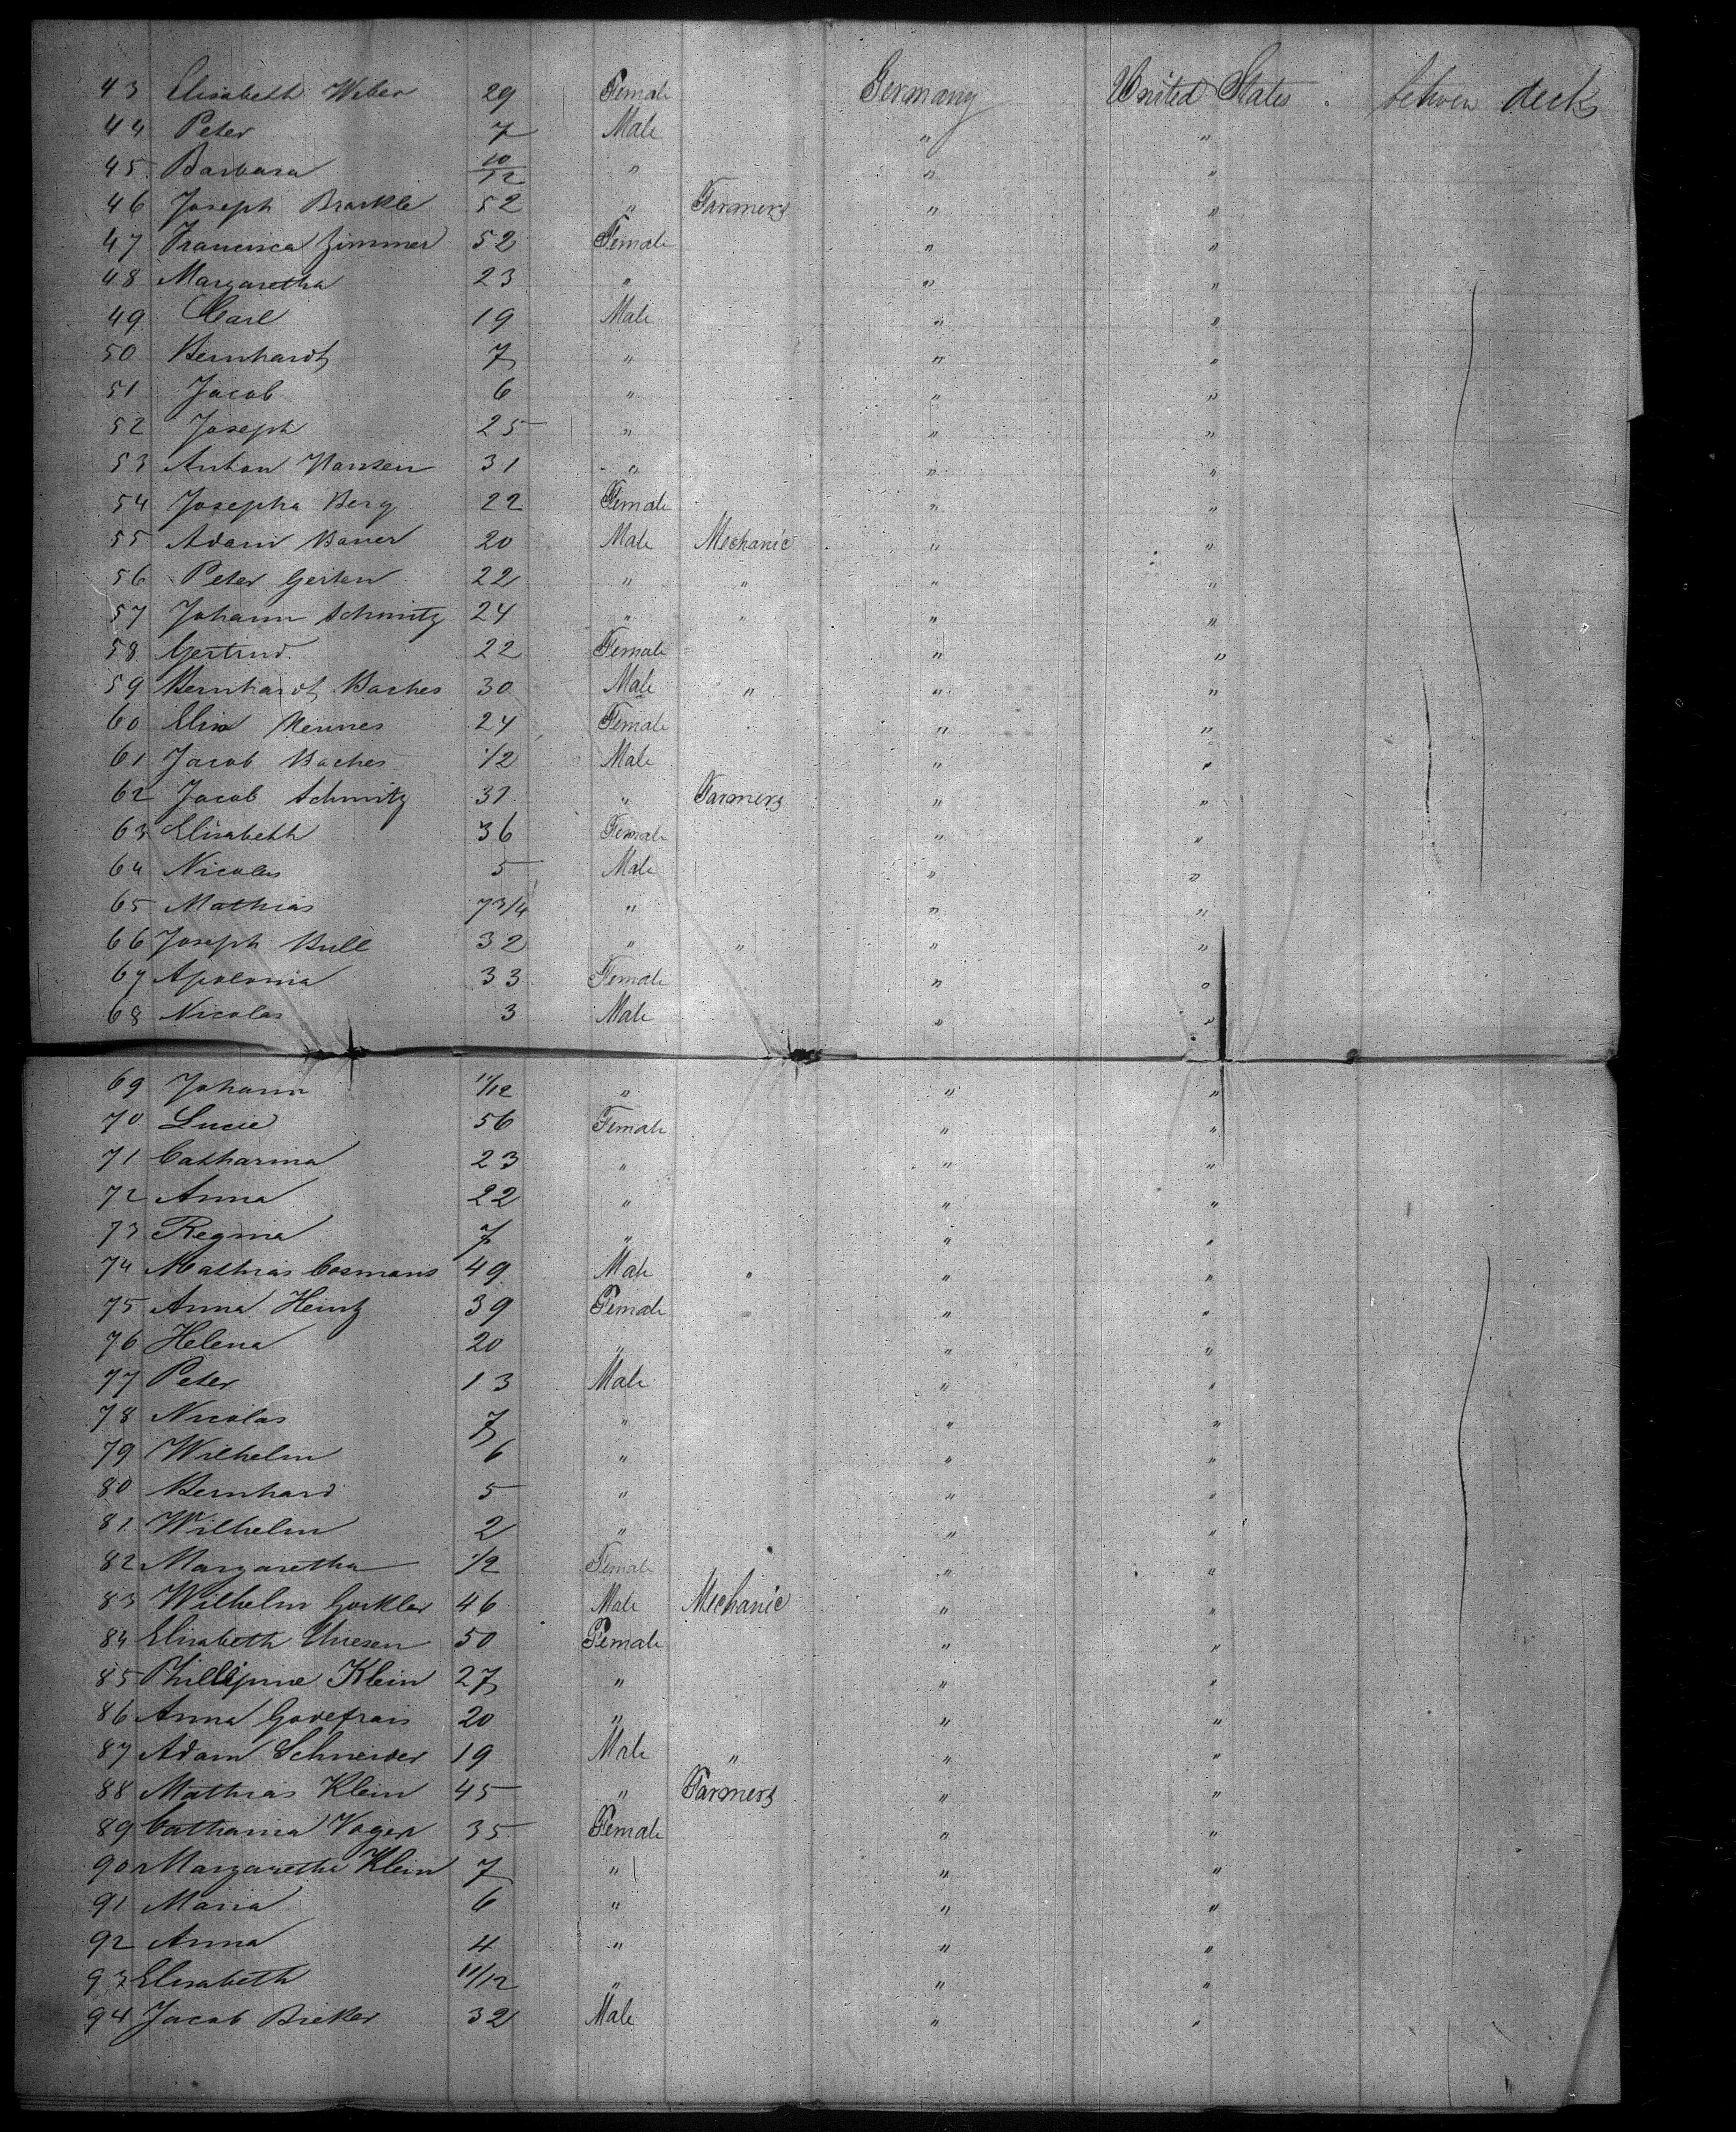 43 Elisabeth Weber 29 Female Germany United States. between deck
44 Peter 7 Male " "
45 Barbara 10/12 " " "
46 Joseph Brackle 52 " Farmers " "
47 Francisca Zimmer 52 Female " "
48 Margaretha 23 " " "
49 Carl 19 Male " "
50 Bernhardt 7 " " "
51 Jacob 6 " " "
52 Joseph 25 " " "
53 Anton Hansen 31 " " "
54 Josepha Berg 22 Female " "
55 Adam Bauer 20 Male Mechanic " "
56 Peter Gerten 22 " " " "
57 Johann Schmitz 24 " " " "
58 Gertrud 22 Female " "
59 Bernhardt Baches 30 Male " " "
60 Elis Hennes 24 Female " "
61 Jacob Baches 1/2 Male " "
62 Jacob Schmitz 31 " Farmers " "
63 Elisabeth 36 Female " "
64 Nicolas 5 Male " "
65 Mathias 73/4 " " "
66 Joseph Bull 32 " " " "
67 Apolonia 33 Female " "
68 Nicolas 3 Male " "
69 Johann 11/12 " " "
70 Lucie 56 Female " "
71 Catharina 23 " " "
72 Anna 22 " " "
73 Regina 7 " " "
74 Mathias Cosmans 49 Male " " "
75 Anna Heintz 39 Female " "
76 Helena 20 " " "
77 Peter 13 Male " "
78 Nicolas 7 " " "
79 Wilhelm 6 " " "
80 Bernhard 5 " " "
81 Wilhelm 2 " " "
82 Margaretha 1/2 Female " "
83 Wilhelm Gockler 46 Male Mechanic " "
84 Elisabeth Thiesen 50 Female " "
85 Phillipine Klein 27 " " "
86 Anna Godefrais 20 " " "
87 Adam Schneider 19 Male " " "
88 Mathias Klein 45 " Farmers " "
89 Catharina Vogen 35 Female " "
90 Margaretha Klein 7 " " "
91 Maria 6 " " "
92 Anna 4 " " "
93 Elisabeth 11/12 " " "
94 Jacob Bicker 32 Male " "